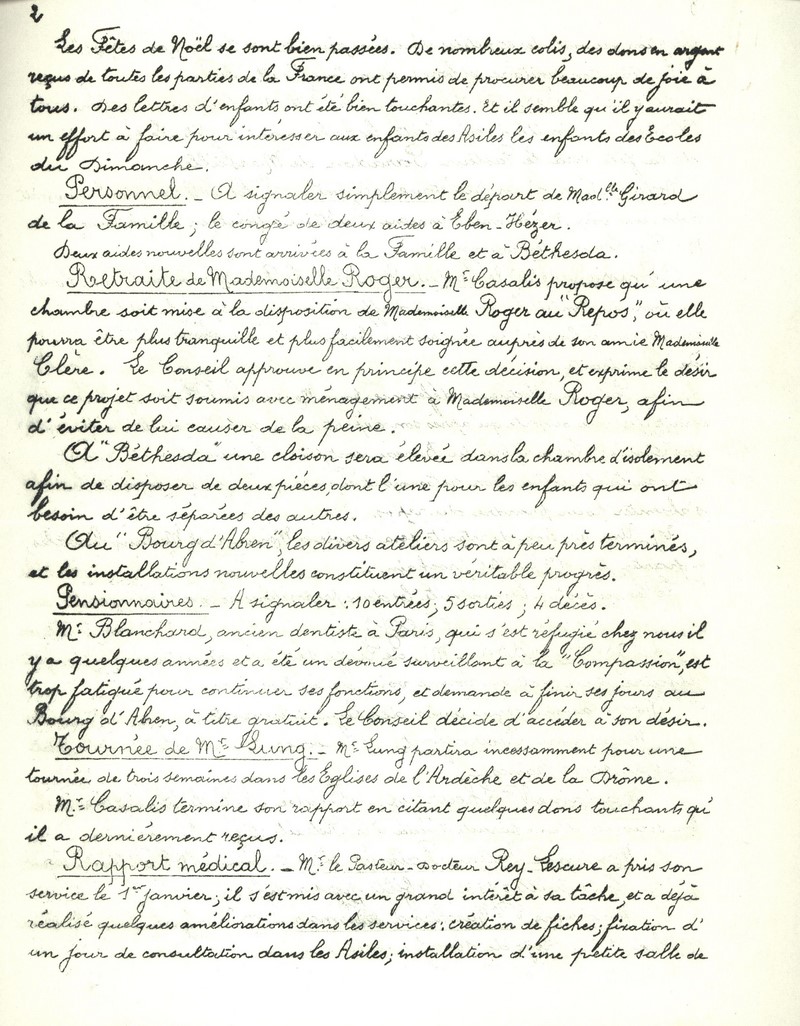 2
Les Fêtes de Noël se sont bien passées. De nombreux colis, des dons en argent
reçus de toutes les parties de la France ont permis de procurer beaucoup de joie à
tous. Des lettres d'enfants ont été bien touchantes. Et il semble qu'il y aurait
un effort à faire pour intéresser aux enfants des Asiles les enfants des Ecoles
du Dimanche.
Personnel. _ A signaler simplement le départ de Mad.elle Girard
de la Famille ; le congé de deux aides à Eben-Hézer.
Deux aides nouvelles sont arrivées à la Famille et à Béthesda.
Retraite de Mademoiselle Roger. _ Mr Casalis propose qu'une
chambre soit mise à la disposition de Mademoiselle Roger au "Repos", où elle
pourra être plus tranquille et plus facilement soignée auprès de son amie Mademoiselle
Clère. Le Conseil approuve en principe cette décision, et exprime le désir
que ce projet soit soumis avec ménagement à Mademoiselle Roger, afin
d'éviter de lui causer de la peine.
A "Béthesda" une cloison sera élevée dans la chambre d'isolement
afin de disposer de deux pièces, dont l'une pour les enfants qui ont
besoin d'être séparées des autres.
Au "Bourg d'Abren", les divers ateliers sont à peu près terminés,
et les installations nouvelles constituent un véritable progrès.
Pensionnaires. _ A signaler : 10 entrées ; 5 sorties ; 4 décès.
Mr Blanchard, ancien dentiste à Paris, qui s'est réfugié chez nous il
y a quelques années et a été un dévoué surveillant à la "Compassion", est
trop fatigué pour continuer ses fonctions, et demande à finir ses jours au
Bourg d'Abren, à titre gratuit. Le Conseil décide d'accéder à son désir.
Tournée de Mr Lung. _ Mr Lung partira incessamment pour une
tournée de trois semaines dans les Eglises de l'Ardèche et de la Drôme.
Mr Casalis termine son rapport en citant quelques dons touchants qu'
il a dernièrement reçus.
Rapport médical. _ Mr le Pasteur-Docteur Rey-Lescure a pris son
service le 1er Janvier ; il s'est mis avec un grand intérêt à sa tâche, et a déjà
réalisé quelques améliorations dans les services : création de fiches ; fixation d'
un jour de consultation dans les Asiles ; installation d'une petite salle de